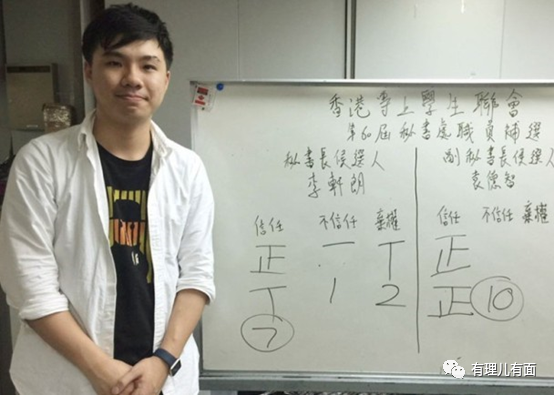 香港專上學生聯會
第60屆秘書處職員補選
秘書長候選人
李軒朗
信任 不信任 棄權
正 一 丅
丅 1 2
7
副秘書長候選人
袁德智
信任 不信任 棄權
正
正 10
有理儿有面